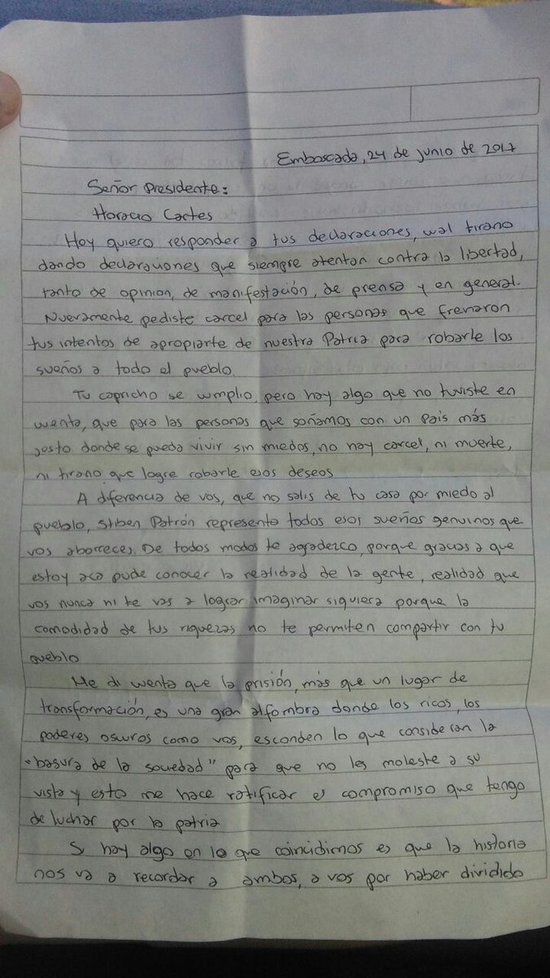 Emboscada, 24 de junio de 2017
Señor Presidente:
Horacio Cartes
Hoy quiero responder a tus declaraciones, cual tirano
dando declaraciones que siempre atentan contra la libertad,
tanto de opinion, de manifestación, de prensa y en general.
Nuevamente pediste carcel para las personas que frenaron
tus intentos de apropiarte de nuestra Patria para robarle los
sueños a todo el pueblo.
Tu capricho se cumplio, pero hay algo que no tuviste en
cuenta, que para las personas que soñamos con un Pais más
justo donde se pueda vivir sin miedos, no hay carcel, ni muerte,
ni tirano que logre robarle esos deseos
A diferencia de vos, que no salis de tu casa por miedo al
pueblo, Stiben Patrón representa todos esos sueños genuinos que
vos aborreces. De todos modos te agradezco, porque gracias a que
estoy aca pude conocer la realidad de la gente, realidad que
vos nunca ni te vas a lograr imaginar siquiera porque la
comodidad de tus riquezas no te permiten compartir con tu
pueblo
Me di cuenta que la prisión, más que un lugar de
transformación, es una gran alfombra donde los ricos, los
poderes oscuros como vos, esconden lo que consideran la
"basura de la sociedad" para que no les moleste a su
vista y esto me hace ratificar el compromiso que tengo
de luchar por la patria
Si hay algo en lo que coincidimos es que la historia
nos va a recordar a ambos, a vos por haber dividido